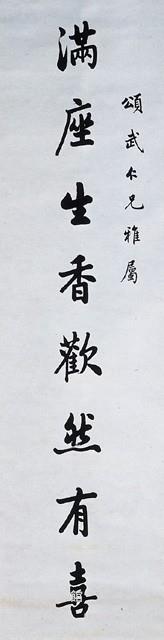 頌武仁兄雅屬
滿座生香歡然有喜